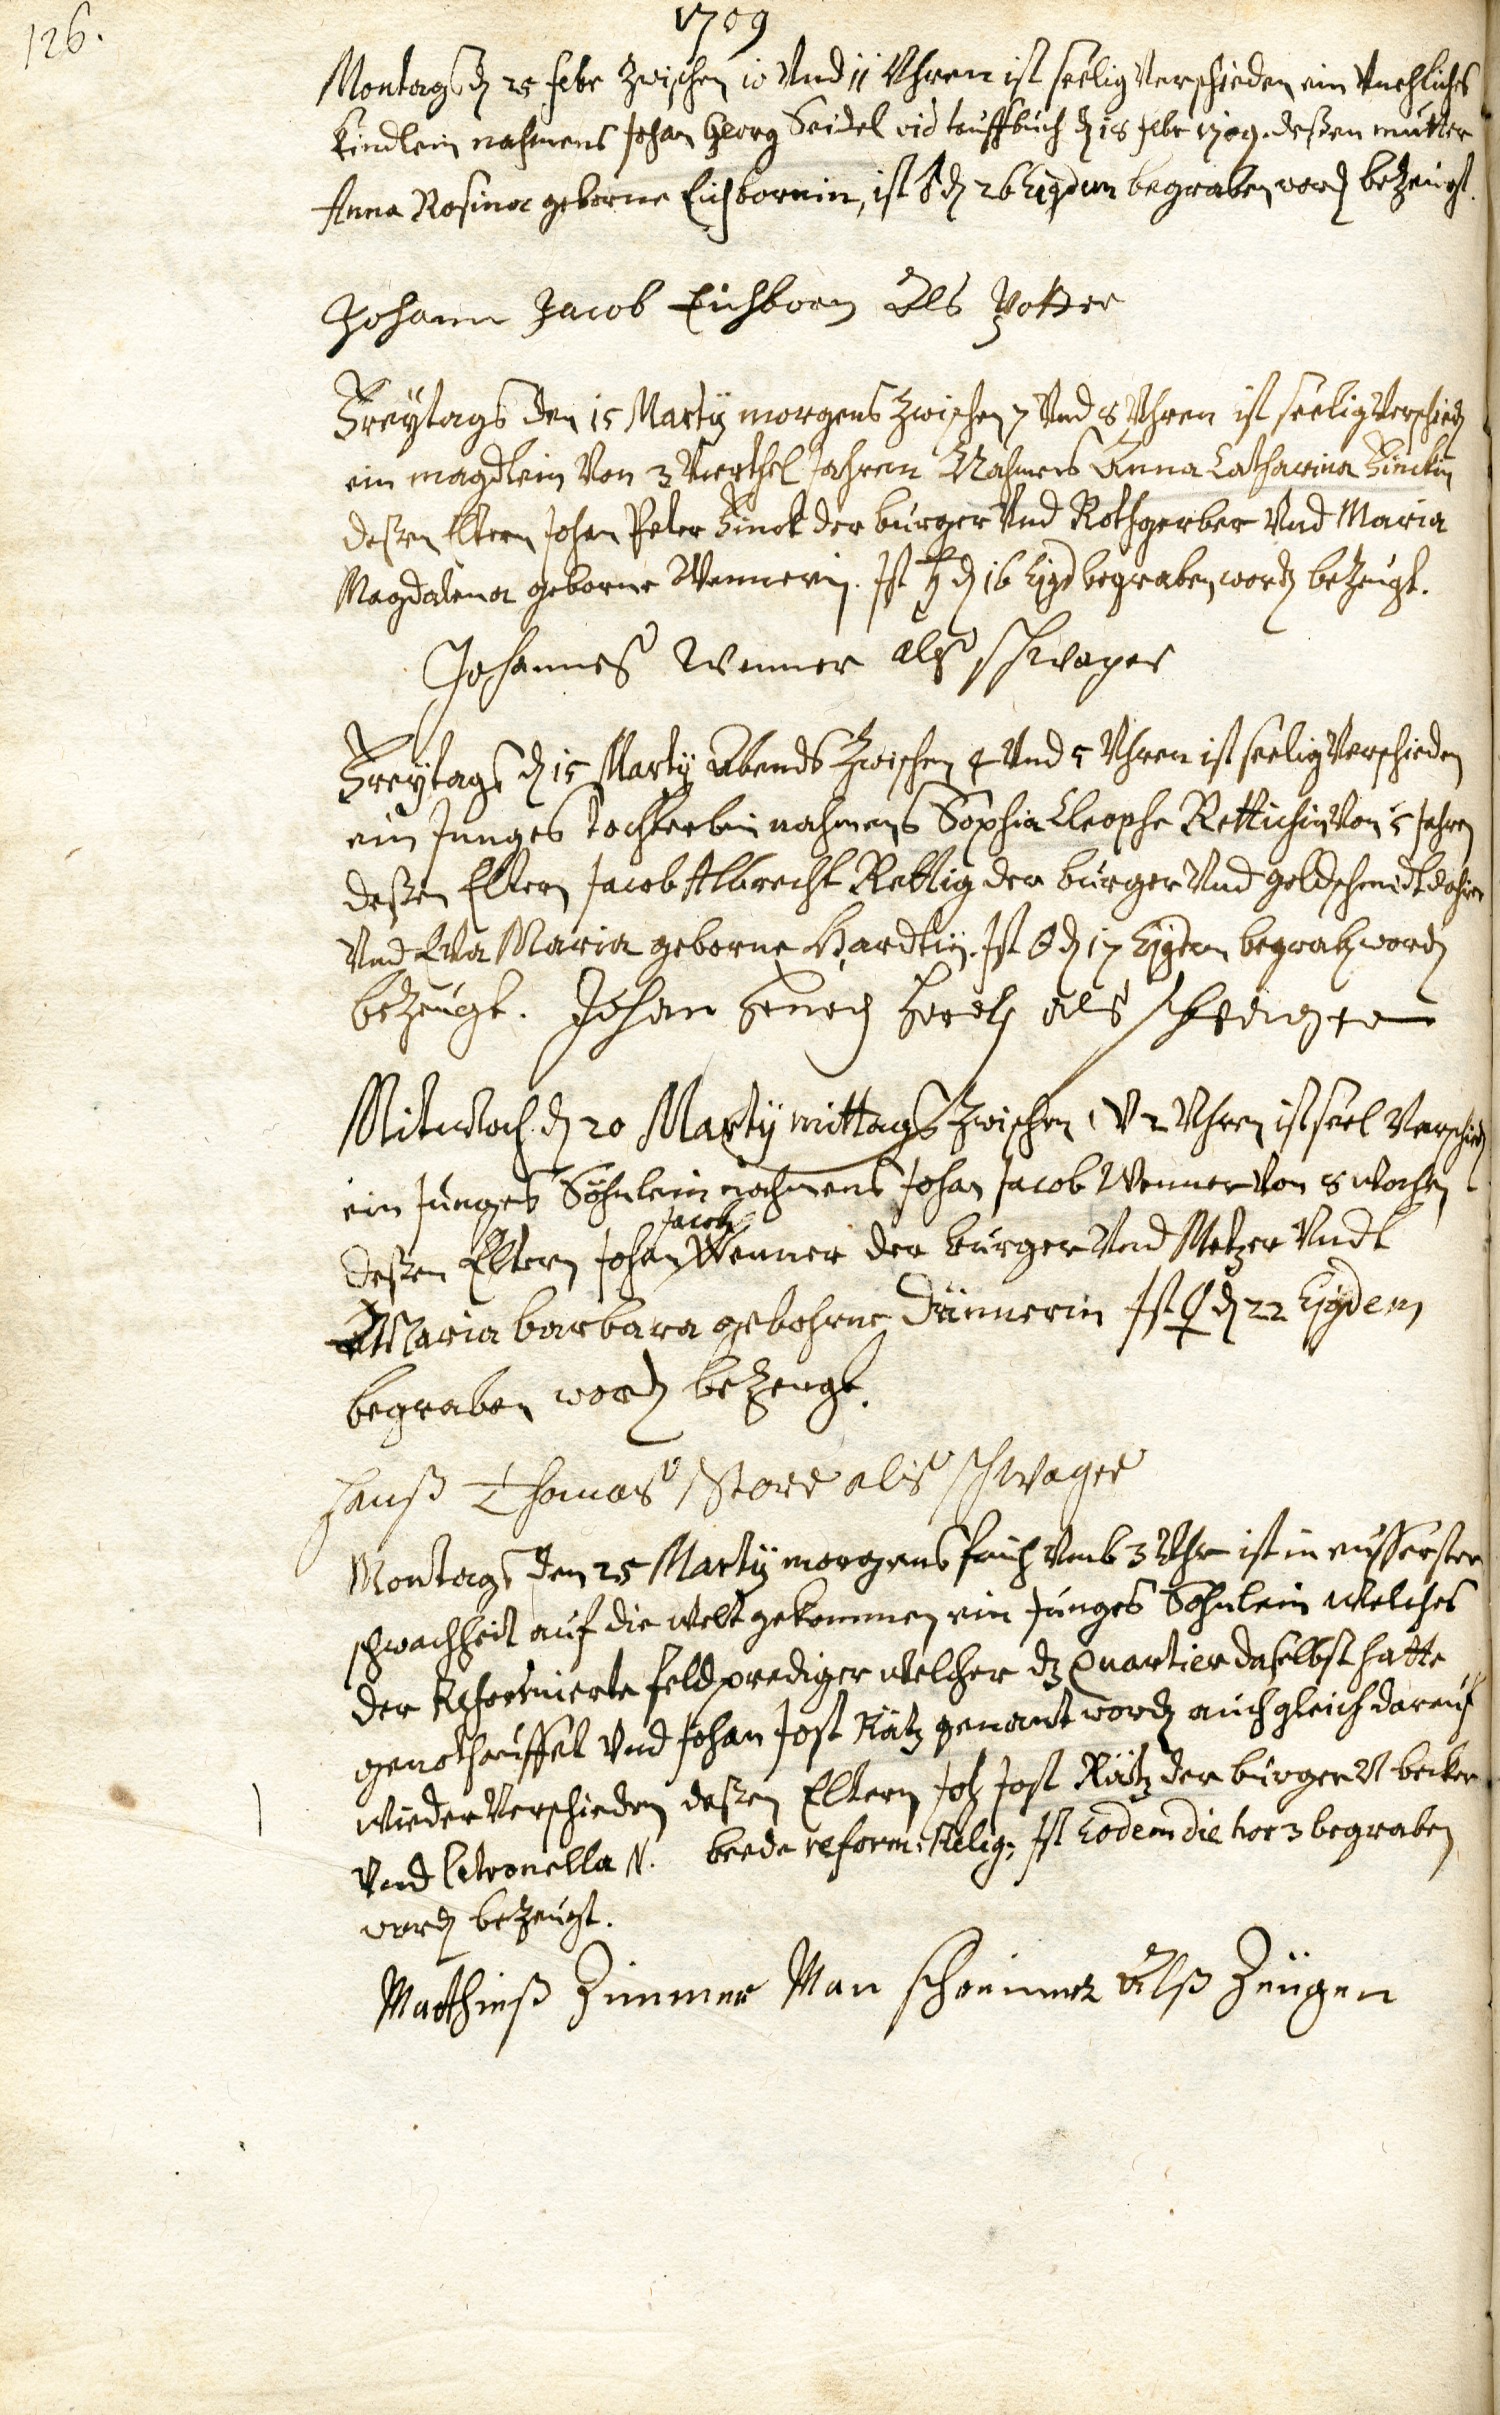 126.
1709
Montags d. 25 febr zwischen 10 Vnd 11 Vhren ist seelig Verschieden ein Vnehliches
Kindlein nahmens Johan Georg Seidel vid tauffbuch d. 18 febr 1709. deßen mutter
Anna Rosina geborne Eichbornin, ist ♂ d. 26 Eijsdem begraben word. bezeugt.
Johann Jacob Eichborn Als Vatter
Freytags den 15 Martij morgens zwischen 7 Vnd 8 Vhren ist seelig Verschied.
ein magdlein Von 3 Vierthel Jahren Nahmens Anna Catharina Zinckin
deßen Eltern Johan Peter Zinck der burger Vnd Rothgerber Vnd Maria
Magdalena geborne Wennerin. Ist ♄ d. 16 Eijsd begraben word. bezeugt.
Johannes Wenner als schwager
Freytags d. 15 Martij Abends zwischen 4 Vnd 5 Vhren ist seelig Verschieden
ein Junges Tochterlein nahmens Sophia Cleophe Rettichin Von 5 Jahren
deßen Eltern Jacob Albrecht Rettig der burger Vnd goldschmidt dahier
Vnd Eva Maria geborne Hardtin. Ist ☉ d. 17 Eijsdem begrab. word.
bezeugt. Johan als schwager
Mitwoch. d. 20 Martij mittags zwischen 1 V 2 Vhren ist seel Verschied.
ein Junges Söhnlein nahmens Johan Jacob Wenner Von 8 wochen
Jacob
deßen Eltern Johan Wenner der burger Vnd Metzer Vndt
Maria barbara gebohrne Dünnerin Ist ♀ d. 22 Eijsdem
begraben word. bezeugt.
Hanß Thomas Storr als schwager
Montags den 25 Martij morgens früh Vmb 3 Vhr ist in eusserster
schwachheit auf die welt gekommen ein Junges Söhnlein welches
der Reformierte feldprediger welcher dz Quartier daselbst hatte
genothtauffet Vnd Johan Jost Rätz genant word. auch gleich darauf
wieder Verschieden deßen Eltern Joh. Jost Rätz der burger V becker
Vnd Petronella N. beede reform: Relig: Ist Eodem die hor 3 begraben
word. bezeugt.
Matthieß Zimmer Man schreiner Alß Zeugen